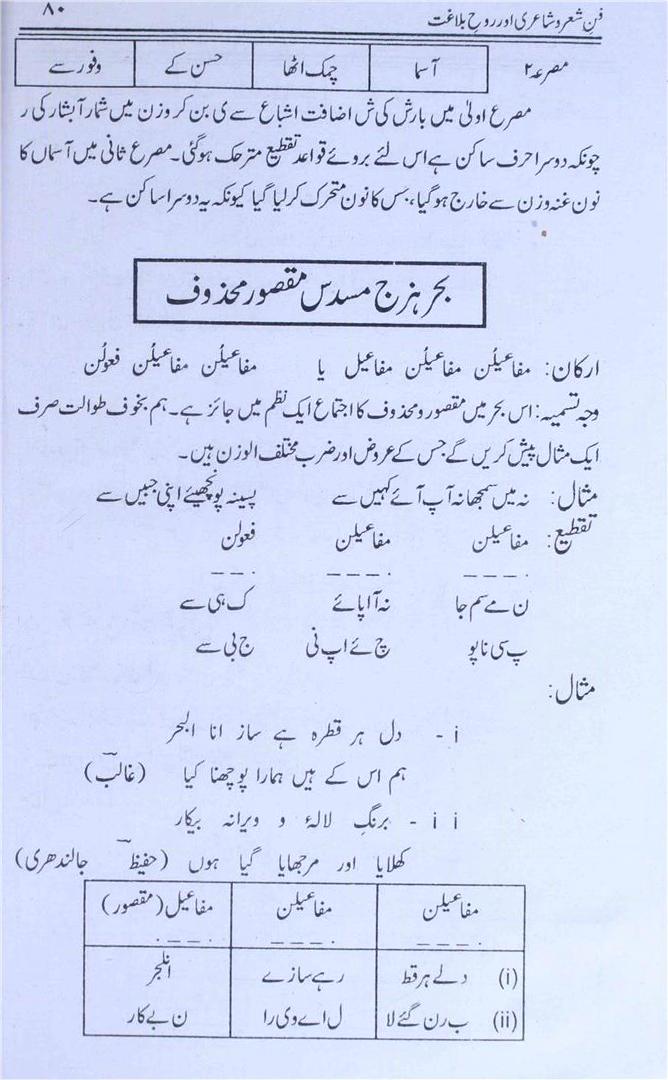 فنِ شعر و شاعری اور روحِ بلاغت ۸۰
مصرعہ ۲ آسما چمک اٹھا حسن کے وفور سے
مصرع اولیٰ میں بارش کی ش اضافت اشباع سے ی بن کر وزن میں شمار آبشار کی ر
چونکہ دوسرا حرف ساکن ہے اس لئے بروئے قواعد تقطیع متحرک ہو گئی۔ مصرع ثانی میں آسماں کا
نون غنہ وزن سے خارج ہو گیا، جس کا نون متحرک کر لیا گیا کیونکہ یہ دوسرا ساکن ہے۔
بحر ہزج مسدس مقصور محذوف
ارکان: مفاعیلُن مفاعیلُن مفاعیل یا مفاعیلُن مفاعیلُن فعولُن
وجہ تسمیہ: اس بحر میں مقصور و محذوف کا اجتماع ایک نظم میں جائز ہے۔ ہم بخوف طوالت صرف
ایک مثال پیش کریں گے جس کے عروض اور ضرب مختلف الوزن ہیں۔
مثال: نہ میں سمجھا نہ آپ آئے کہیں سے پسینہ پونچھیئے اپنی جبیں سے
تقطیع: مفاعیلن مفاعیلن فعولن
ن مے سم جا نہ آ اپائے ک ہی سے
پ سی نا پو چ ئے اپ نی ج بی سے
مثال:
i - دل ہر قطرہ ہے ساز انا البحر
ہم اس کے ہیں ہمارا پوچھنا کیا (غالبؔ)
ii - برنگِ لالۂ و ویرانہ بیکار
کھلایا اور مرجھایا گیا ہوں (حفیظؔ جالندھری)
مفاعیلن مفاعیلن مفاعیل (مقصور)
(i) دلے ہر قط رہے سازے
(ii) ب رن گئے لا ل اے وی را ن بے کار